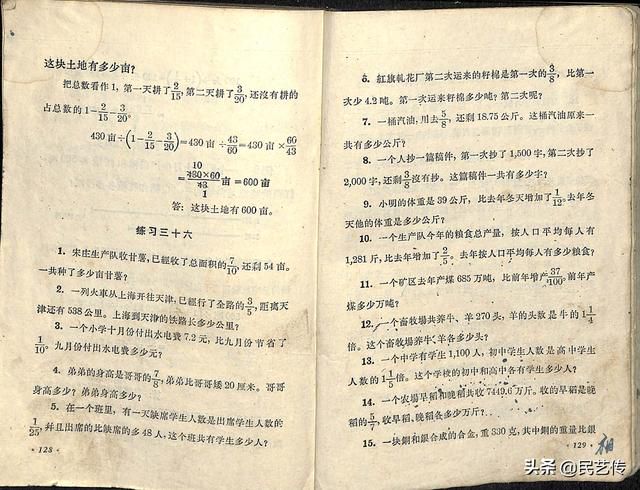 这块土地有多少亩?
把总数看作1, 第一天耕了2/15, 第二天耕了3/20, 还没有耕的
占总数的1-2/15-3/20。
430亩÷(1-2/15-3/20)=430亩÷43/60=430亩×60/43
=430×60/43亩=600亩
10
1
答: 这块土地有600亩。
练习三十六
1. 宋庄生产队收甘薯, 已經收了总面积的7/10, 还剩54亩。
一共种了多少亩甘薯?
2. 一列火車从上海开往天津, 已經行了全路的3/5, 距离天
津还有538公里。上海到天津的铁路长多少公里?
3. 一个小学十月份付出水电费7.2元, 比九月份节省了
1/10。九月份付出水电费多少元?
4. 弟弟的身高是哥哥的7/8, 弟弟比哥哥矮20厘米。哥哥
身高多少? 弟弟身高多少?
5. 在一个班里, 有一天缺席学生人数是出席学生人数的
1/25, 并且出席的比缺席的多48人, 这个班共有学生多少人?
· 128 ·
6. 紅旗軋花厂第二次运来的籽棉是第一次的3/8, 比第一
次少4.2吨。第一次运来籽棉多少吨? 第二次呢?
7. 一桶汽油, 用去5/8, 还剩18.75公斤。这桶汽油原来一
共有多少公斤?
8. 一个人抄一篇稿件, 第一次抄了1,500字, 第二次抄了
2,000字, 还剩3/8沒有抄。这篇稿件一共有多少字?
9. 小明的体重是39公斤, 比去年冬天增加了1/12。去年冬
天他的体重是多少公斤?
10. 一个生产队今年的粮食总产量, 按人口平均每人有
1,281斤, 比去年增加了2/5。去年按人口平均每人有多少粮食?
11. 一个矿区去年产煤685万吨, 比前年增产37/100。前年产
煤多少万吨?
12. 一个畜牧場共养牛、羊270头, 羊的头数是牛的1 1/4
倍。这个畜牧場养牛、羊各多少头?
13. 一个中学有学生1,100人, 初中学生人数是高中学生
人数的1 1/5倍。这个学校的初中和高中各有学生多少人?
14. 一个农場早稻和晚稻共收7449.6万斤。收的早稻是晚
稻的5/7, 收早稻、晚稻各多少万斤?
15. 一块銅和銀合成的合金, 重330克, 其中銅的重量比銀
· 129 ·
头条 @民艺传